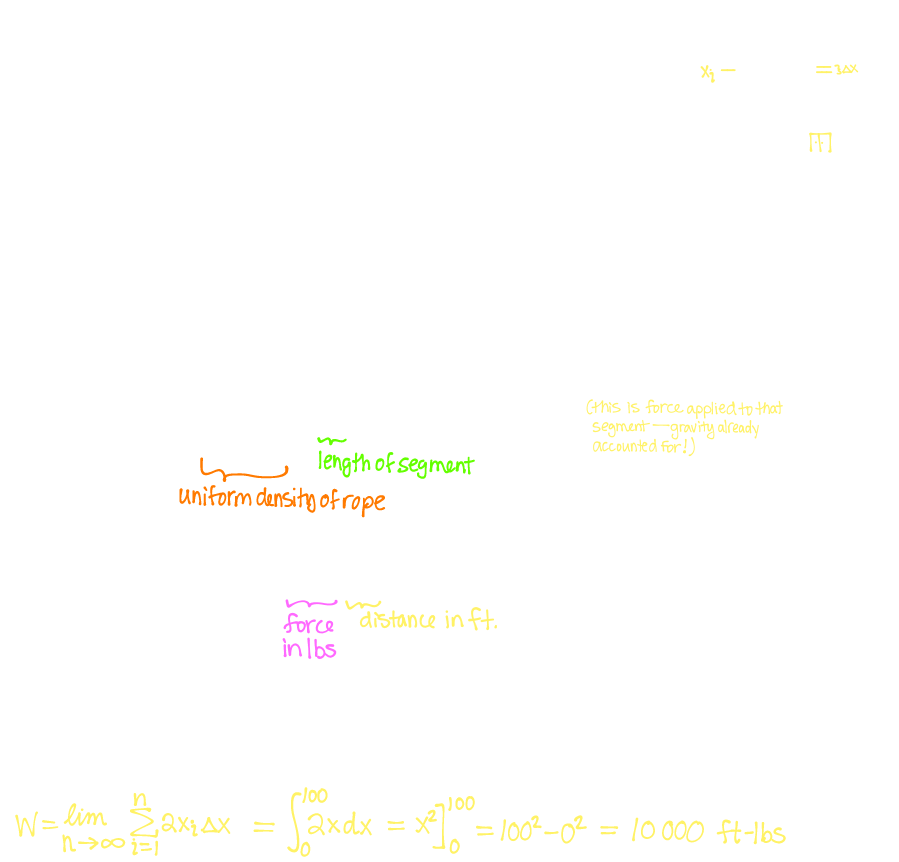 xᵢ — = iΔx
(this is force applied to that
segment — gravity already
accounted for!)
length of segment
uniform density of rope
force
in lbs
distance in ft.
W = lim n→∞ Σ i=1 n 2xᵢ Δx = ∫₀¹⁰⁰ 2x dx = x²]₀¹⁰⁰ = 100² - 0² = 10 000 ft-lbs